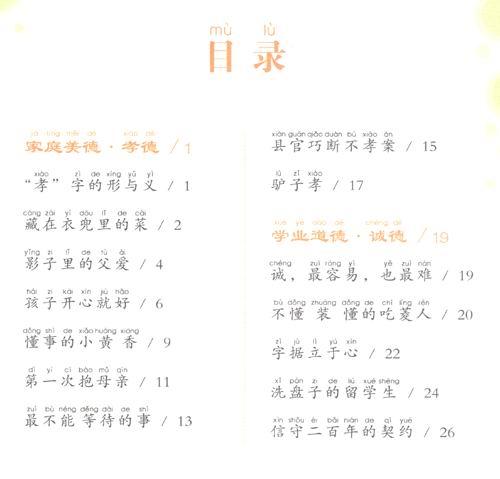 mù lù
目录
jiā tíng měi dé xiào dé
家庭美德·孝德 / 1
xiào zì de xíng yǔ yì
“孝”字的形与义 / 1
cáng zài yī dōu lǐ de cài
藏在衣兜里的菜 / 2
yǐng zi lǐ de fù ài
影子里的父爱 / 4
hái zi kāi xīn jiù hǎo
孩子开心就好 / 6
dǒng shì de xiǎo huáng xiāng
懂事的小黄香 / 9
dì yī cì bào mǔ qīn
第一次抱母亲 / 11
zuì bù néng děng dài de shì
最不能等待的事 / 13
xiàn guān qiǎo duàn bú xiào àn
县官巧断不孝案 / 15
lǘ zǐ xiào
驴子孝 / 17
xué yè dào dé chéng dé
学业道德·诚德 / 19
chéng zuì róng yì yě zuì nán
诚，最容易，也最难 / 19
bù dǒng zhuāng dǒng de chī líng rén
不懂装懂的吃菱人 / 20
zì jù lì yú xīn
字据立于心 / 22
xǐ pán zi de liú xué shēng
洗盘子的留学生 / 24
xìn shǒu èr bǎi nián de qì yuē
信守二百年的契约 / 26